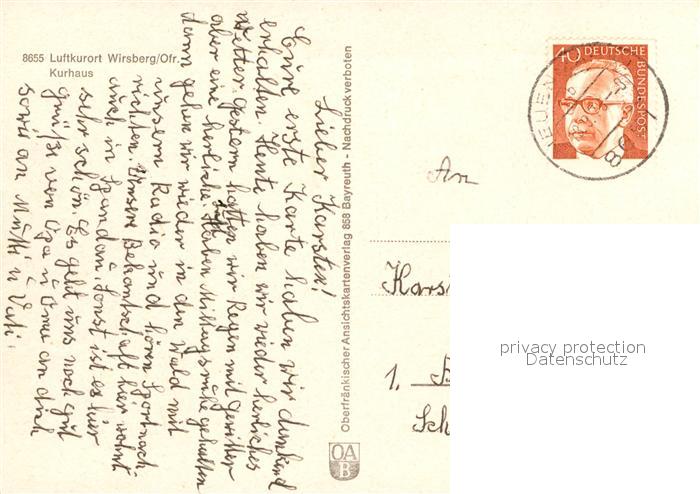 8655 Luftkurort Wirsberg/Ofr.
Kurhaus
Lieber Karsten!
Eure erste Karte haben wir dankend
erhalten. Heute haben wir wieder herliches
Wetter. gestern hatten wir Regen mit Gewitter
aber eine herliche Luft. Haben Mittagsruhe gehalten
dann gehen wir wieder in den Wald mit
unserm Radio und hören Sportnach-
richten. Unsere Bekantschaft hier wohnt
auch in Spandau, sonst ist es hier
sehr schön. Es geht uns noch gut
grüße von Opa u Omi an dich
sowie an Mutti u Vati.
Oberfränkischer Ansichtskartenverlag 858 Bayreuth - Nachdruck verboten
OA
B
40 DEUTSCHE BUNDESPOST
An
Kars
1. B
Sch
privacy protection
Datenschutz